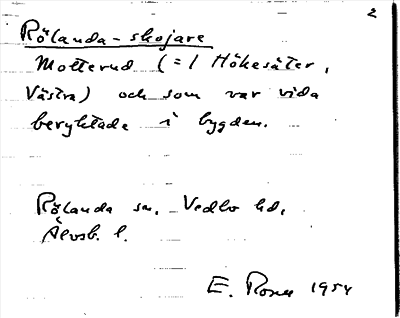 2
Rölanda-skojare
Motterud (= i Hökesäter,
Västra) och som var vida
beryktade i bygden.
Rölanda sn. Vedbo hd,
Älvsb. l.
E. 1954